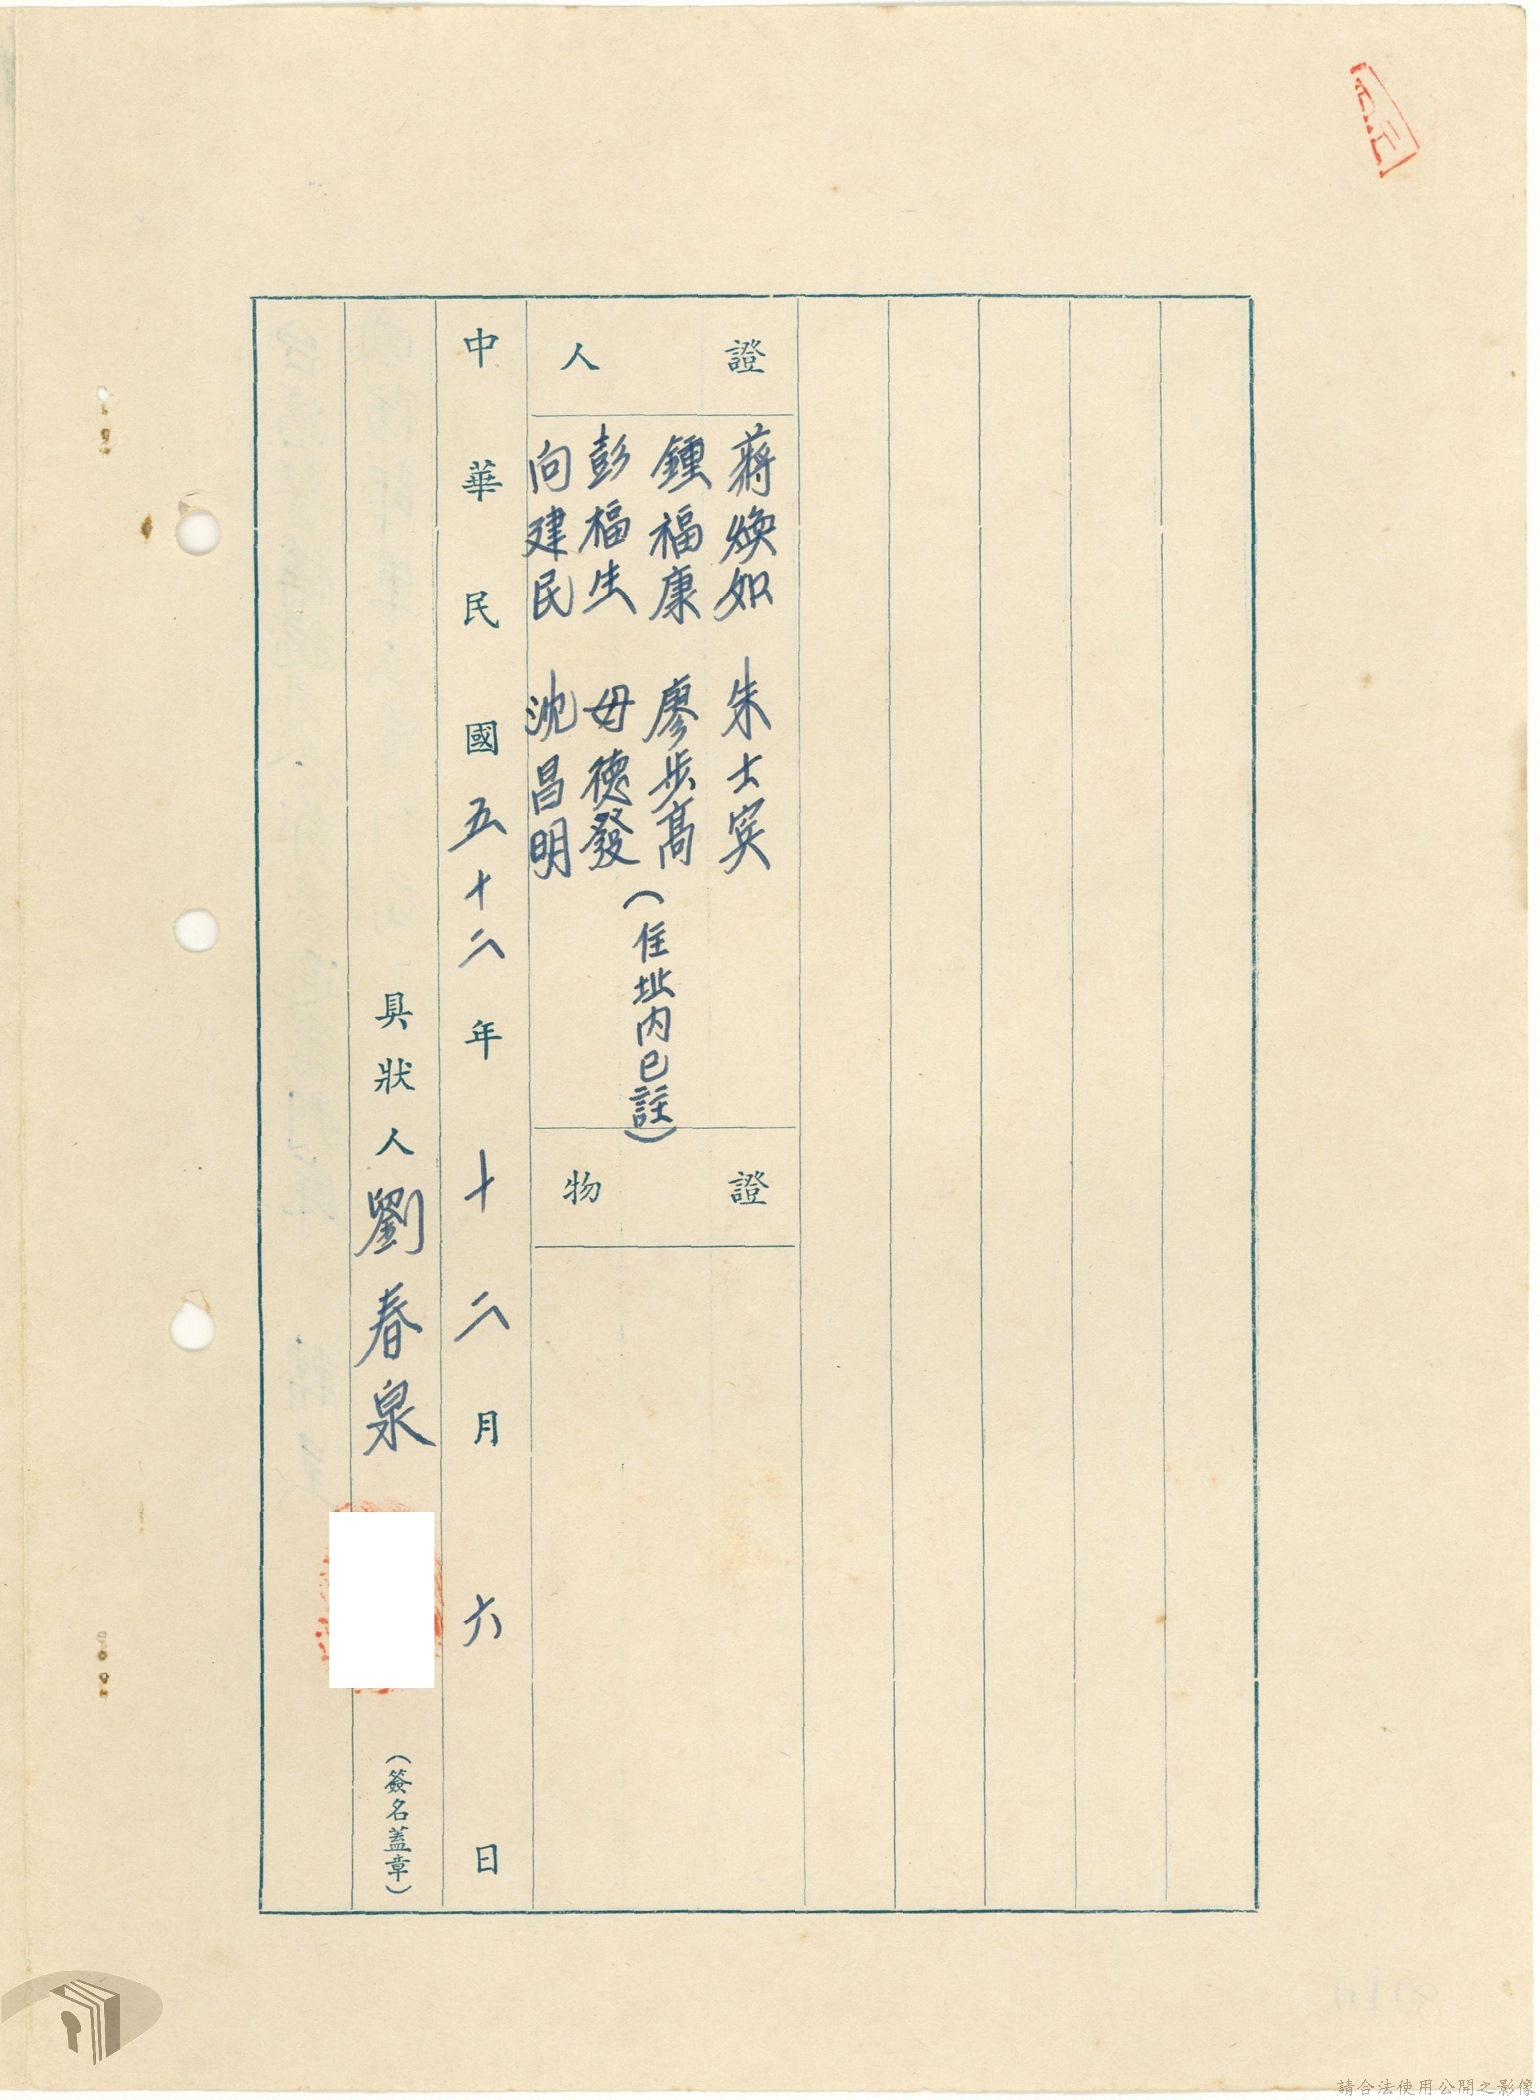 證人
蔣煥如 朱士賓
鍾福康 廖步高
彭福生 毋德發
向建民 沈昌明
(住址內已註)
證物
中華民國五十二年十二月六日
具狀人劉春泉
(簽名蓋章)
請合法使用公開之影像